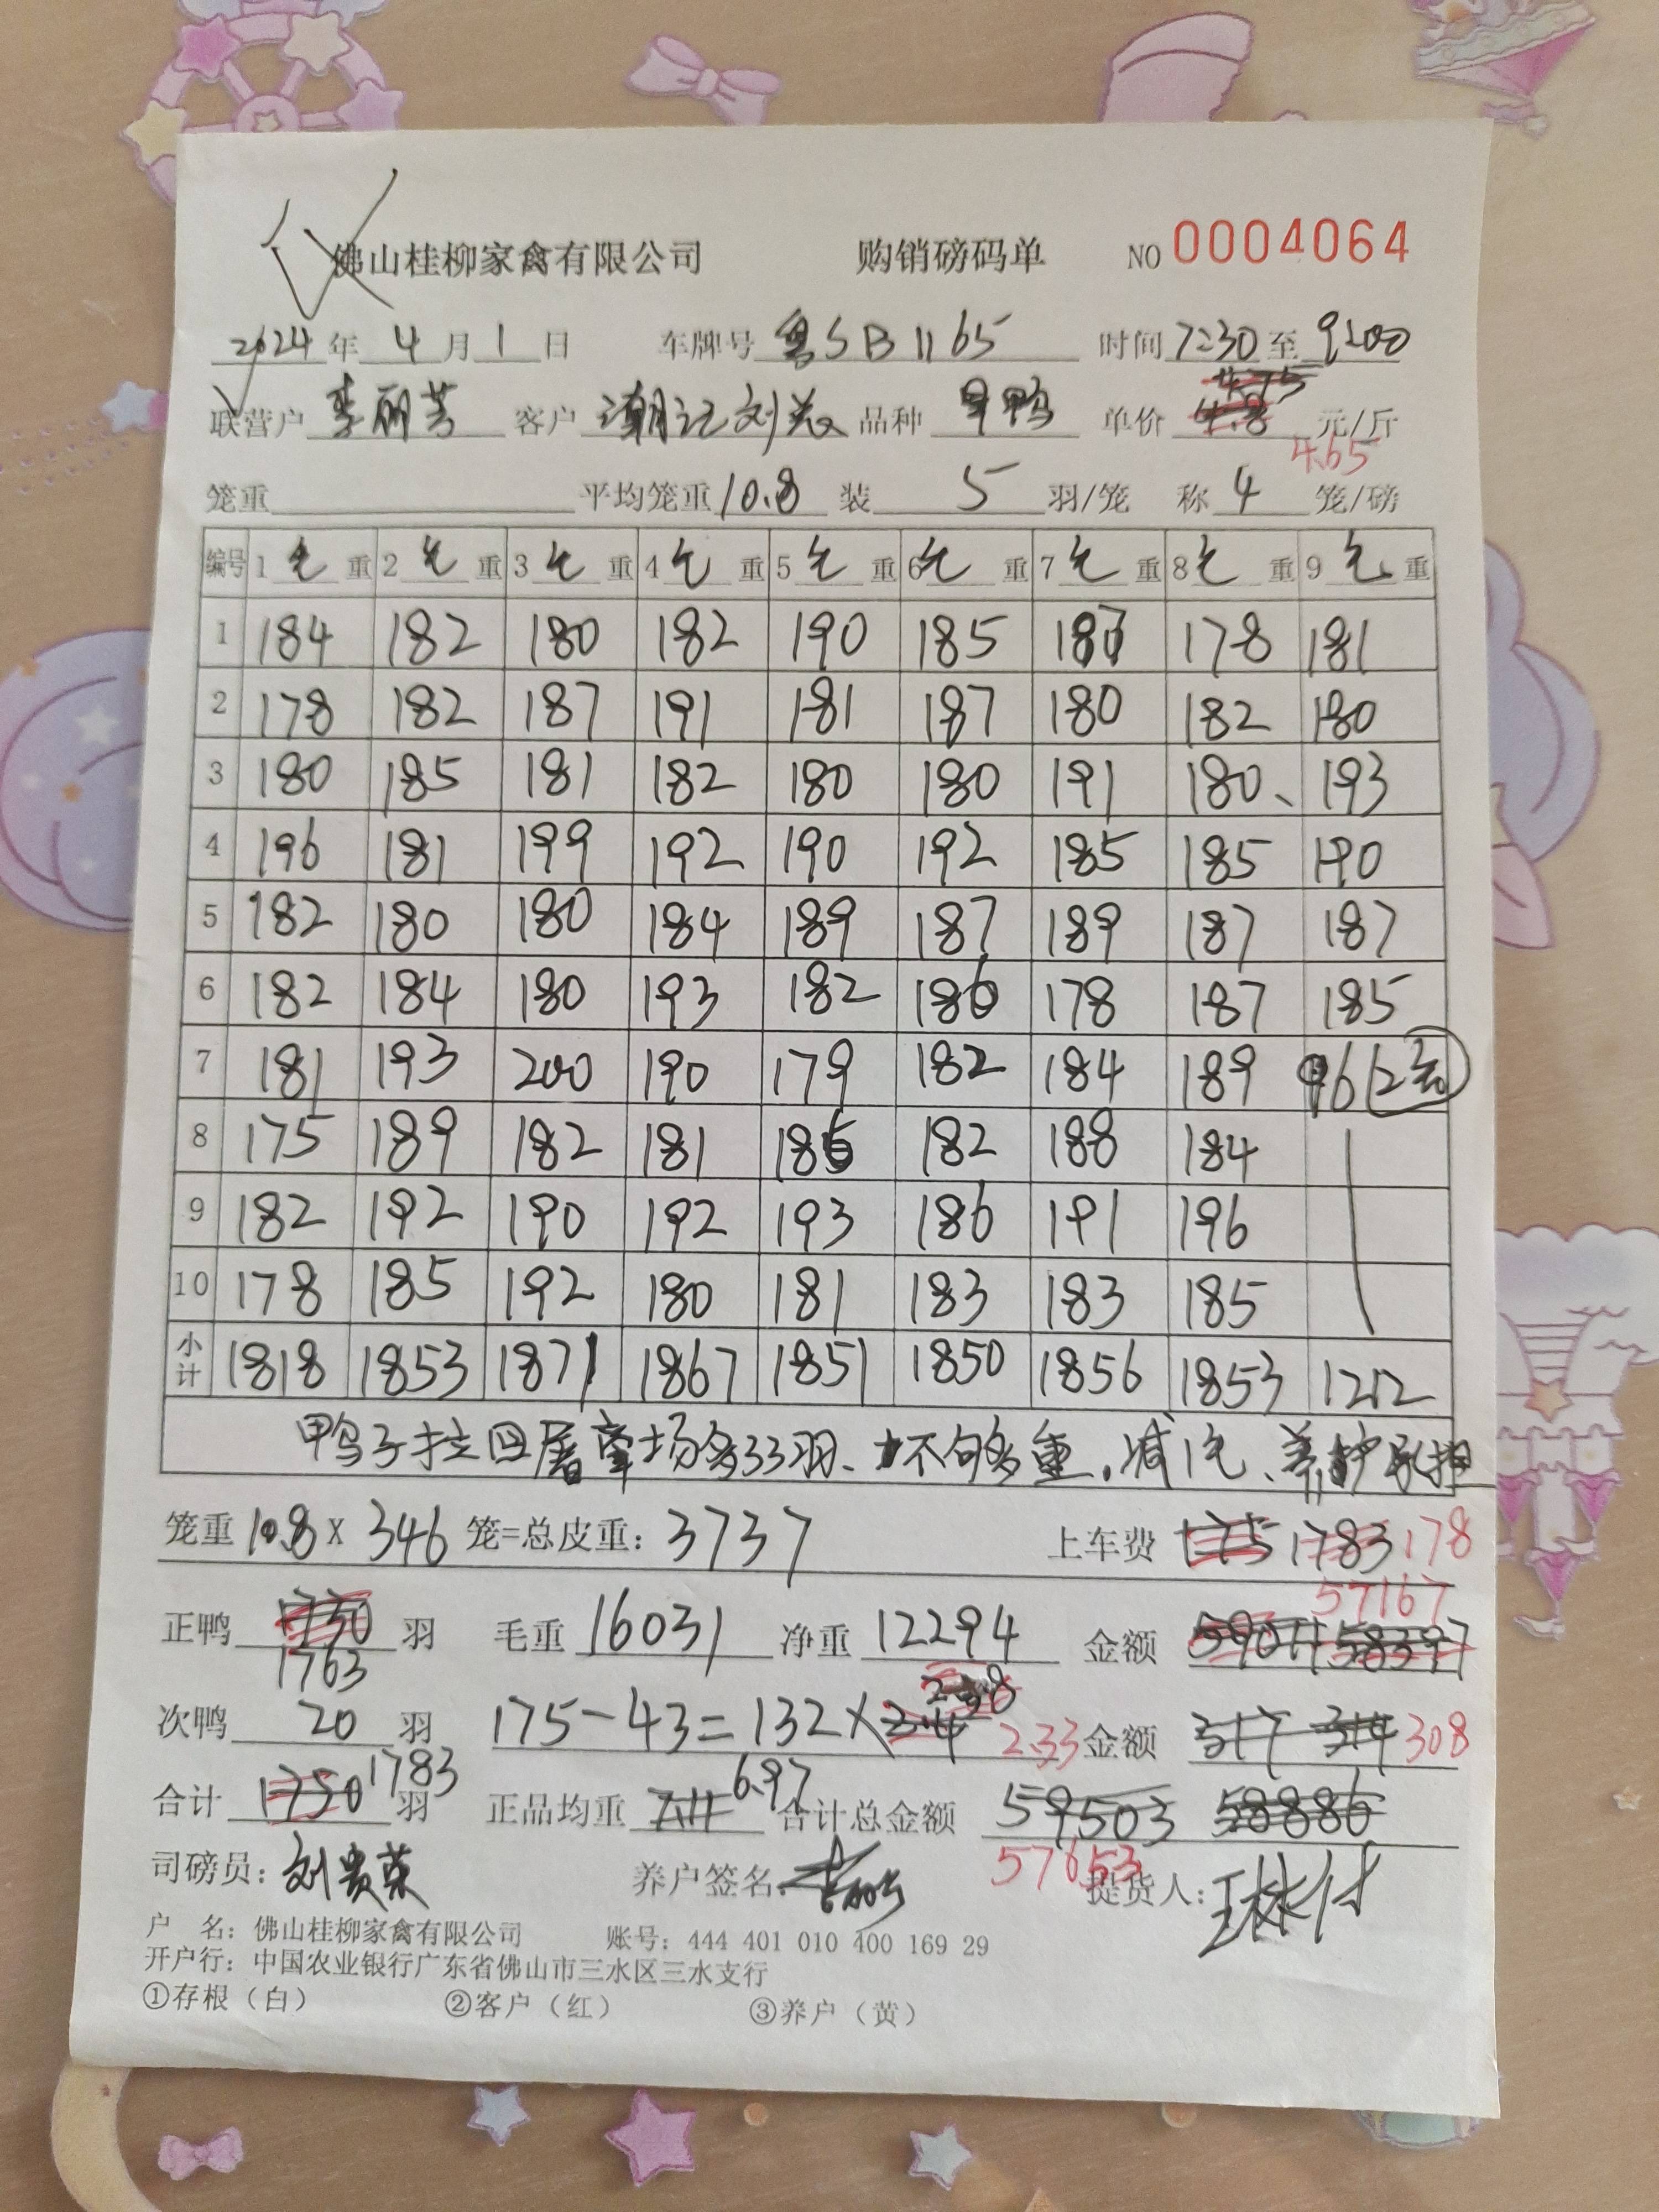 佛山桂柳家禽有限公司 购销磅码单 NO 0004064
2024 年 4 月 1 日 车牌号 粤SB1165 时间 7:30 至 9:00
4.75
联营户 李丽芳 客户 潮记刘 品种 旱鸭 单价 4.8 元/斤
4.65
笼重 平均笼重 10.8 装 5 羽/笼 称 4 笼/磅
编号 1 毛 重 2 毛 重 3 毛 重 4 毛 重 5 毛 重 6 毛 重 7 毛 重 8 毛 重 9 毛 重
1 184 182 180 182 190 185 187 178 181
2 178 182 187 191 181 187 180 182 180
3 180 185 181 182 180 180 191 180、 193
4 196 181 199 192 190 192 185 185 190
5 182 180 180 184 189 187 189 187 187
6 182 184 180 193 182 186 178 187 185
7 181 193 200 190 179 182 184 189 96 (2笼)
8 175 189 182 181 186 182 188 184
9 182 192 190 192 193 186 191 196
10 178 185 192 180 181 183 183 185
小计 1818 1853 1871 1867 1851 1850 1856 1853 1212
鸭子拉回屠宰场多33羽、不够重,减1毛、养户承担
笼重 10.8 X 346 笼=总皮重: 3737 上车费 175 1783 178
57167
正鸭 1730 羽 毛重 16031 净重 12294 金额 59011 58397
1763
次鸭 20 羽 175-43=132×2.4 2.38 2.33 金额 317 314 308
合计 1750 1783 羽 正品均重 7.11 6.97 合计总金额 59503 58886
57653
司磅员: 刘贵荣 养户签名: 提货人:
户 名: 佛山桂柳家禽有限公司 账号: 444 401 010 400 169 29
开户行: 中国农业银行广东省佛山市三水区三水支行
①存根(白) ②客户(红) ③养户(黄)